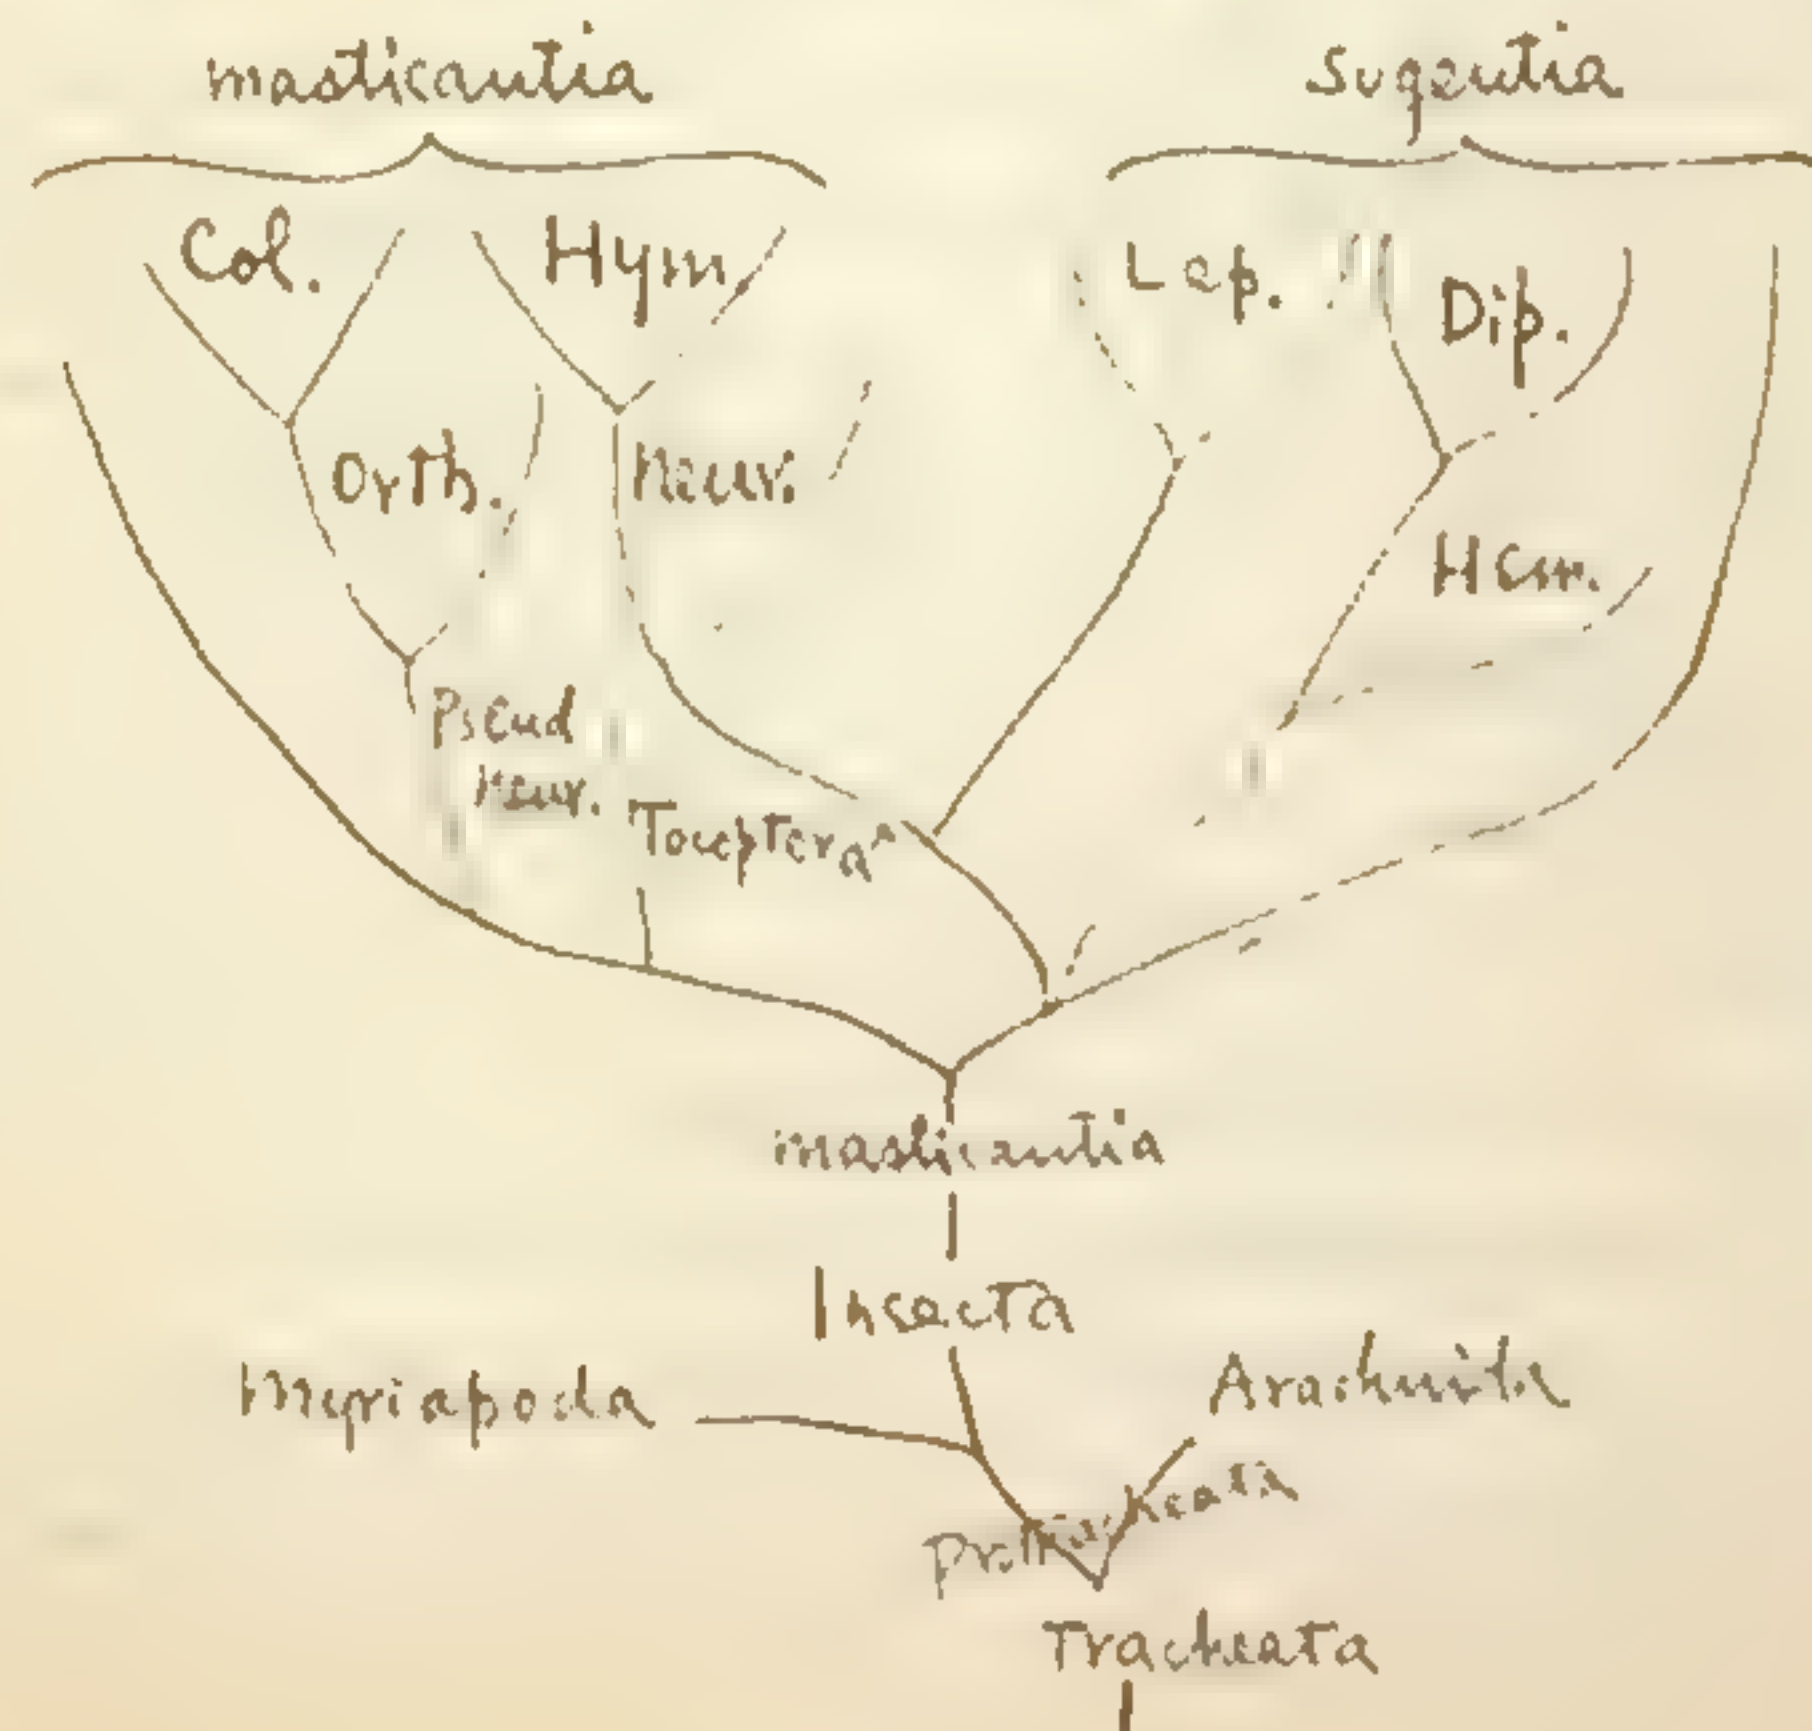 masticantia
Sugentia
Col.
Hym.
Lep.
Dip.
Orth.
Neur.
Hem.
Pseud
Neur.
Tocoptera
masticantia
Insecta
Myriapoda
Arachnida
Tracheata